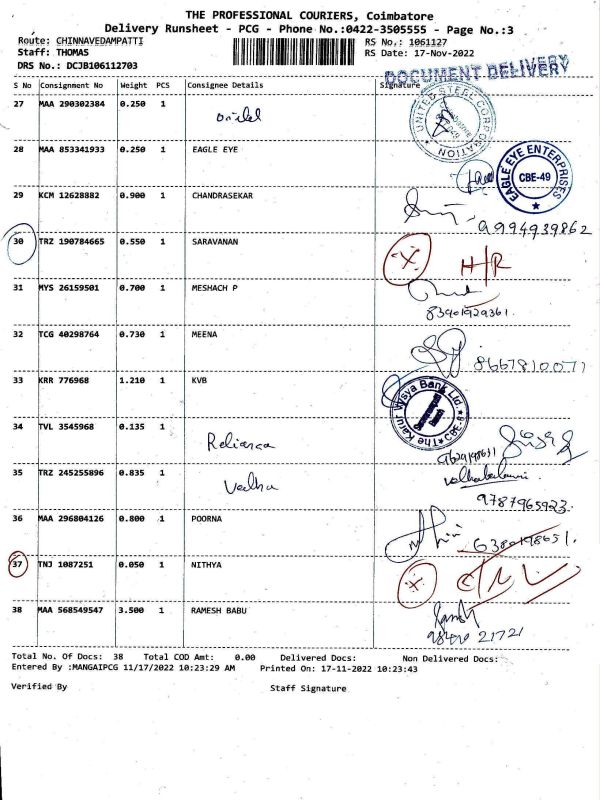 THE PROFESSIONAL COURIERS, Coimbatore
Delivery Runsheet - PCG - Phone No.:0422-3505555 - Page No.:3
Route: CHINNAVEDAMPATTI RS No.: 1061127
Staff: THOMAS RS Date: 17-Nov-2022
DRS No.: DCJB106112703
DOCUMENT DELIVERY
S No Consignment No Weight PCS Consignee Details Signature
27 MAA 290302384 0.250 1
UNITED STEEL CORPORATION
28 MAA 853341933 0.250 1 EAGLE EYE
EAGLE EYE ENTERPRISES CBE-49
29 KCM 12628882 0.900 1 CHANDRASEKAR
9994939862
30 TRZ 190784665 0.550 1 SARAVANAN
H/R
31 MYS 26159501 0.700 1 MESHACH P
32 TCG 40298764 0.730 1 MEENA
8667810071
33 KRR 776968 1.210 1 KVB
The Karur Vysya Bank Ltd. Branch CBE-6
34 TVL 3545968 0.135 1
Reliance
35 TRZ 245255896 0.835 1
Vedha
9787965923
36 MAA 296804126 0.800 1 POORNA
6380198651.
37 TNJ 1087251 0.050 1 NITHYA
38 MAA 568549547 3.500 1 RAMESH BABU
Total No. Of Docs: 38 Total COD Amt: 0.00 Delivered Docs: Non Delivered Docs:
Entered By :MANGAIPCG 11/17/2022 10:23:29 AM Printed On: 17-11-2022 10:23:43
Verified By Staff Signature